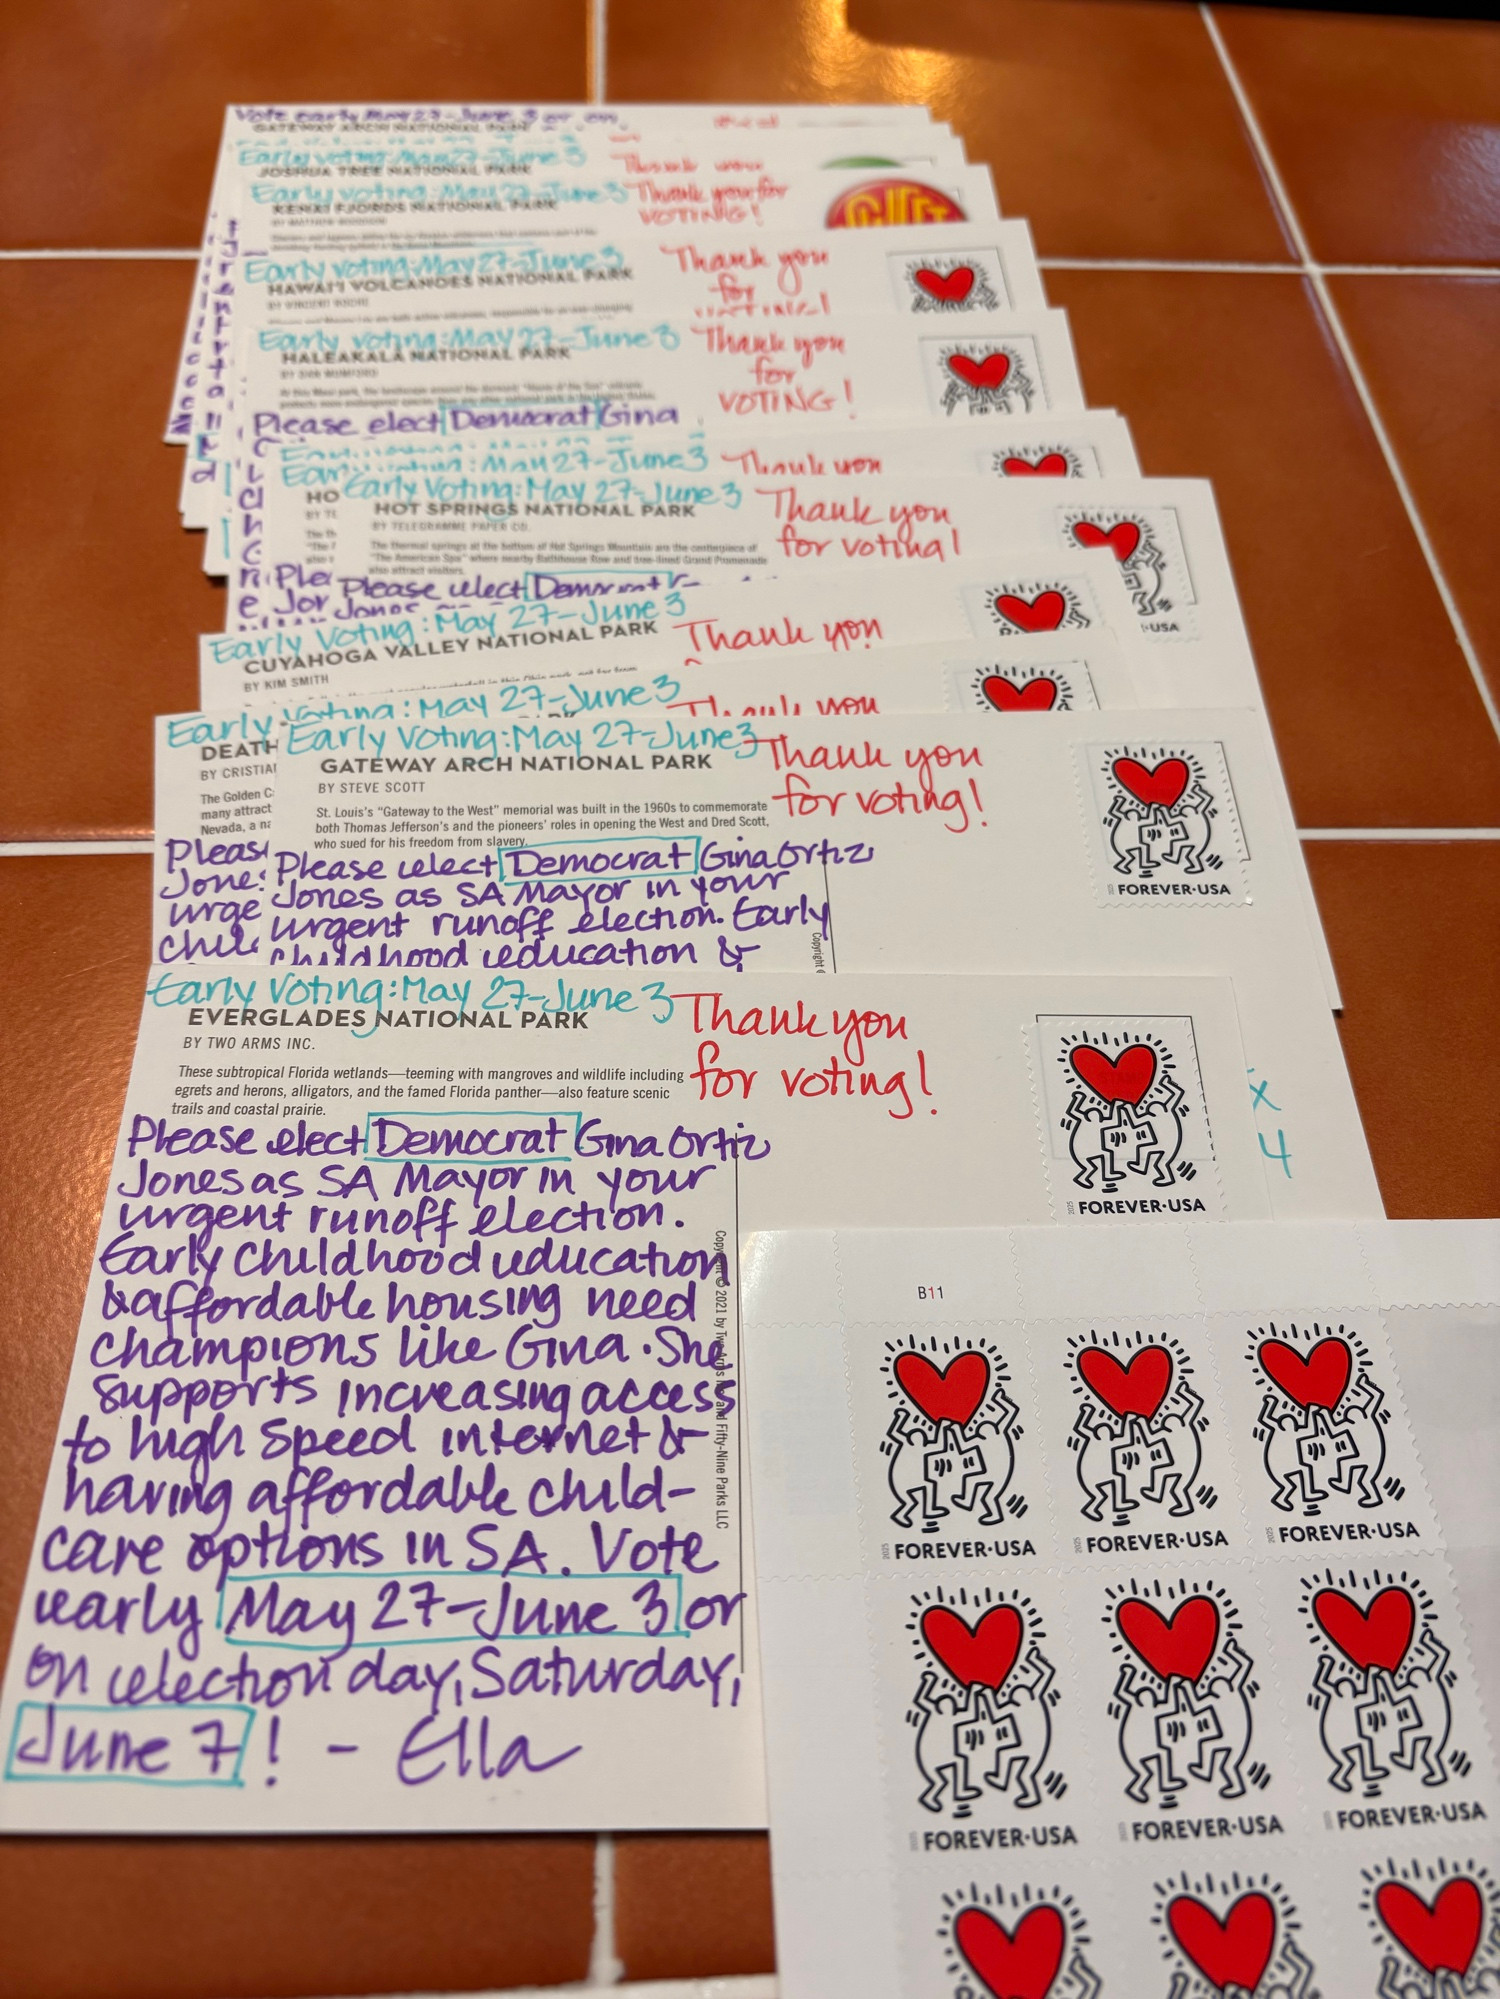 Vote early May 27-June 3 or on
GATEWAY ARCH NATIONAL PARK
Early voting: May 27-June 3
Thank you
JOSHUA TREE NATIONAL PARK
Early voting: May 27-June 3
Thank you for
VOTING!
KENAI FJORDS NATIONAL PARK
Early voting: May 27-June 3
Thank you
for
VOTING!
HAWAI'I VOLCANOES NATIONAL PARK
BY VINCENT ROCHE
Early voting: May 27-June 3
Thank you
for
VOTING!
HALEAKALA NATIONAL PARK
BY DAN MUMFORD
Please elect Democrat Gina
Early voting: May 27-June 3
Thank you
HO
BY TE
Early Voting: May 27-June 3
Thank you
for voting!
HOT SPRINGS NATIONAL PARK
BY TELEGRAMME PAPER CO.
The thermal springs at the bottom of Hot Springs Mountain are the centerpiece of
"The American Spa" where nearby Bathhouse Row and tree-lined Grand Promenade
also attract visitors.
Please elect Democrat
Jones
USA
Early Voting: May 27-June 3
Thank you
CUYAHOGA VALLEY NATIONAL PARK
BY KIM SMITH
Early Voting: May 27-June 3
Thank you
Early
DEATH
BY CRISTIA
The Golden
many attract
Nevada, a na
Pleas
Jone
urge
chil
Early Voting: May 27-June 3
Thank you
for voting!
GATEWAY ARCH NATIONAL PARK
BY STEVE SCOTT
St. Louis's "Gateway to the West" memorial was built in the 1960s to commemorate
both Thomas Jefferson's and the pioneers' roles in opening the West and Dred Scott,
who sued for his freedom from slavery.
Please elect Democrat Gina Ortiz
Jones as SA Mayor in your
urgent runoff election. Early
childhood education &
Copyright ©
FOREVER·USA
Early Voting: May 27-June 3
Thank you
for voting!
EVERGLADES NATIONAL PARK
BY TWO ARMS INC.
These subtropical Florida wetlands—teeming with mangroves and wildlife including
egrets and herons, alligators, and the famed Florida panther—also feature scenic
trails and coastal prairie.
Please elect Democrat Gina Ortiz
Jones as SA Mayor in your
urgent runoff election.
Early childhood education
& affordable housing need
champions like Gina. She
supports increasing access
to high speed internet &
having affordable child-
care options in SA. Vote
early May 27-June 3 or
on election day, Saturday,
June 7! - Ella
Copyright © 2021 by Two Arms Inc and Fifty-Nine Parks LLC
2025
FOREVER·USA
x
4
B11
2025 FOREVER·USA
2025 FOREVER·USA
2025 FOREVER·USA
FOREVER·USA
FOREVER·USA
FOREVER·USA